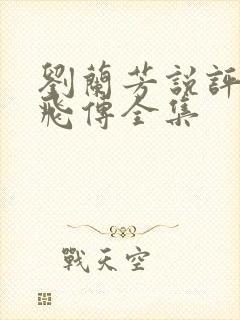 劉蘭芳說評
飛傳全集
戰天空